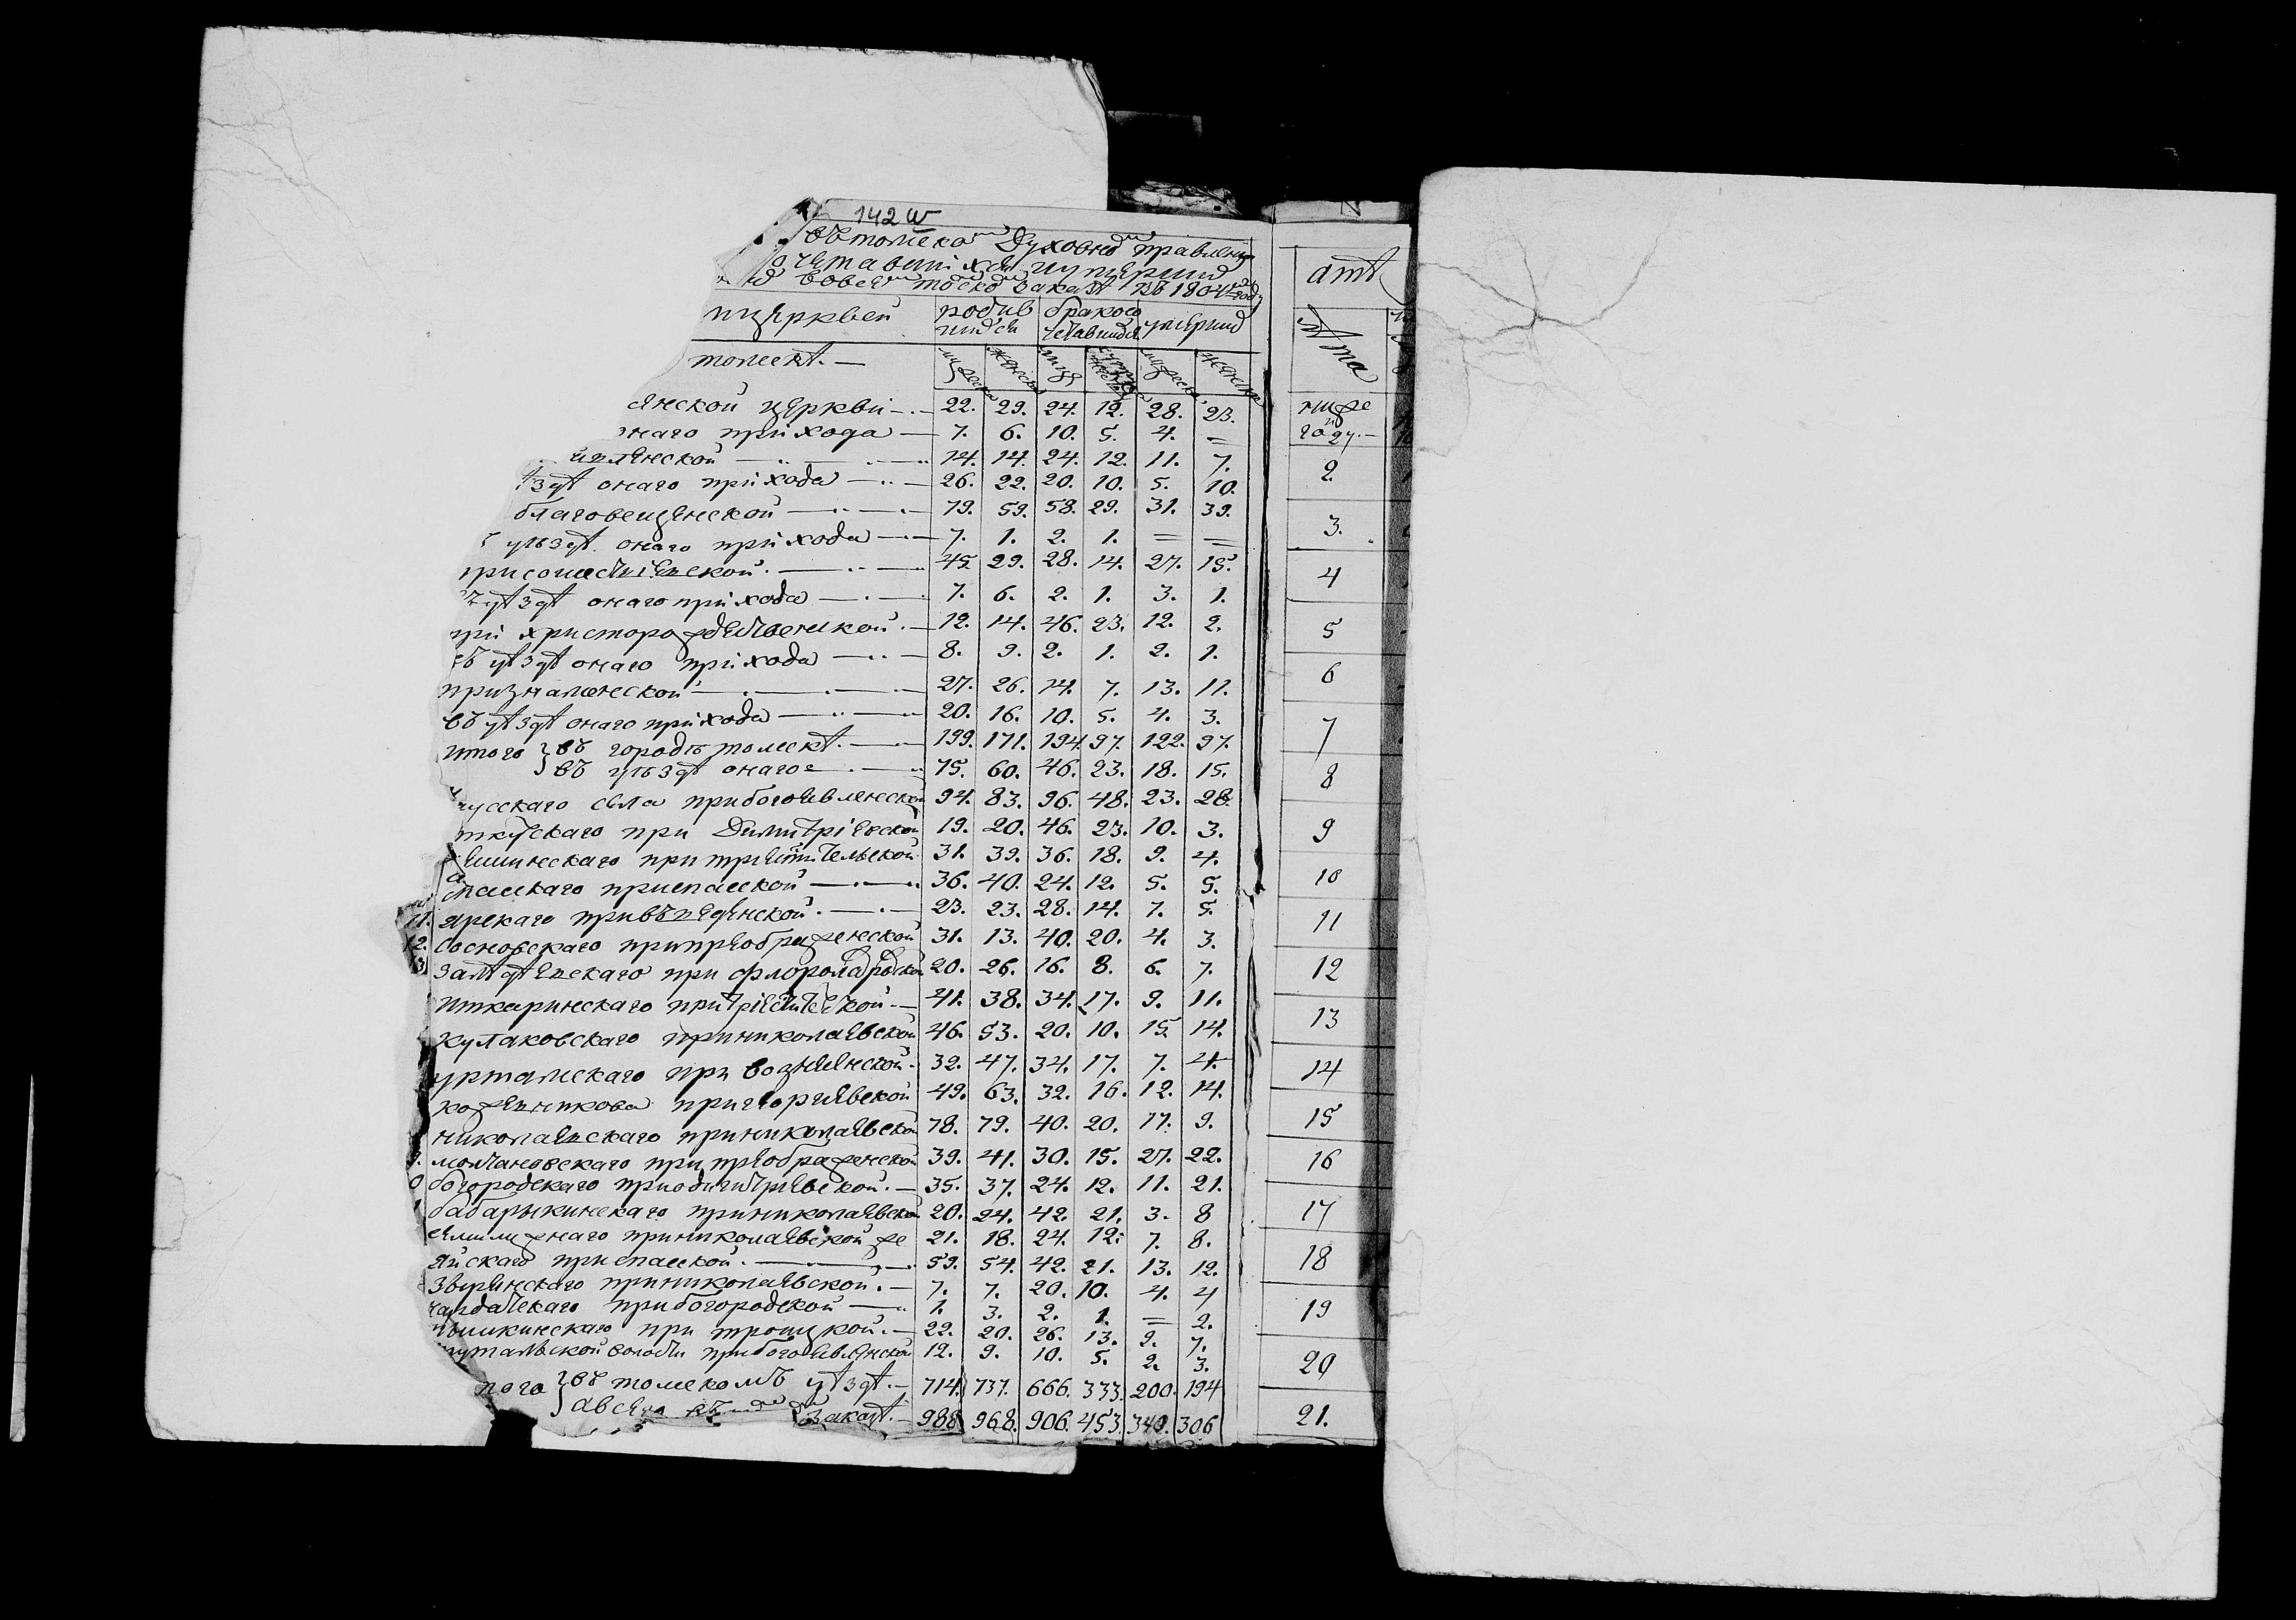 142 w
въ томскомъ Духовномъ правлении
четавшихся и умерших
вовсемъ томскомъ заказѣ въ 1804мъ году
и церквей родив бракосо умерших
шихся четавшихся
томскѣ. —
мужеска женска лицъ женска мужеска женска
церкви — 22. 29. 24. 12. 28. 23.
онаго прихода — 7. 6. 10. 5. 4. =
явленской — 14. 14. 24. 12. 11. 7.
уѣздѣ онаго прихода — 26. 22. 20. 10. 5. 10.
благовещенской — 79. 59. 58. 29. 31. 39.
уѣздѣ онаго прихода — 7. 1. 2. 1. = =
при сошествіевской. — 45. 29. 28. 14. 27. 15.
уѣздѣ онаго прихода — 7. 6. 2. 1. 3. 1.
при христорождественской. — 12. 14. 46. 23. 12. 2.
въ уѣздѣ онаго прихода — 8. 9. 2. 1. 2. 1.
при знаменской — 27. 26. 14. 7. 13. 11.
въ уѣздѣ онаго прихода — 20. 16. 10. 5. 4. 3.
итого въ городѣ томскѣ. — 199. 171. 194. 97. 122. 97.
въ уѣздѣ онаго — 75. 60. 46. 23. 18. 15.
русскаго села при богоявленской 94. 83. 96. 48. 23. 28.
при Димитріевской 19. 20. 46. 23. 10. 3.
при трехсвятительской 31. 39. 36. 18. 9. 4.
спасскаго при спасской — 36. 40. 24. 12. 5. 5.
11. ярскаго при введенской. — 23. 23. 28. 14. 7. 5.
12. сосновскаго при преображенской 31. 13. 40. 20. 4. 3.
залѣдеевскаго при флоролавровской 20. 26. 16. 8. 6. 7.
иткаринскаго при трехсвятительской. — 41. 38. 34. 17. 9. 11.
кулаковскаго при николаевской 46. 53. 20. 10. 15. 14.
уртамскаго при вознесенской. 32. 47. 34. 17. 7. 4.
кожевникова при георгиевской 49. 63. 32. 16. 12. 14.
николаевскаго при николаевской 78. 79. 40. 20. 17. 9.
молчановскаго при преображенской 39. 41. 30. 15. 27. 22.
богородскаго при одигитриевской. — 35. 37. 24. 12. 11. 21.
бабарыкинскаго при николаевской 20. 24. 42. 21. 3. 8
семилужнаго при николаевской же 21. 18. 24. 12. 7. 8.
яйскаго при спасской. — 59. 54. 42. 21. 13. 12.
зырянскаго при николаевской. — 7. 7. 20. 10. 4. 4
чардатскаго при богородской — 1. 3. 2. 1. = 2.
пышкинскаго при троицкой. — 22. 20. 26. 13. 2. 7.
волости при богоявленской 12. 9. 10. 5. 2. 3.
того въ томскомъ уѣздѣ. — 714. 737. 666. 333. 200. 194
а всего въ заказѣ. — 988. 968. 906. 453. 340. 306
лѣт
лѣта
ниже
году. —
2.
3.
4
5
6
7
8
9
10
11
12
13
14
15
16
17
18
19
20
21.